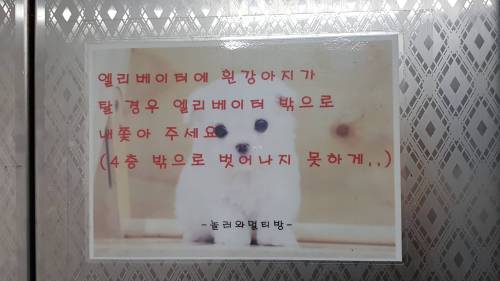 엘리베이터에 흰강아지가
탈 경우 엘리베이터 밖으로
내쫓아 주세요
(4층 밖으로 벗어나지 못하게,,)
-놀러와멀티방-